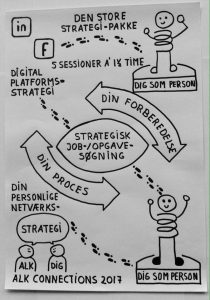 in
f
DEN STORE
STRATEGI-PAKKE
5 SESSIONER A' 1½ TIME
DIG SOM PERSON
DIGITAL
PLATFORMS-
STRATEGI
DIN FORBEREDELSE
STRATEGISK
JOB-/OPGAVE-
SØGNING
DIN PROCES
DIN
PERSONLIGE
NETVÆRKS-
STRATEGI
ALK
DIG
DIG SOM PERSON
ALK CONNECTIONS 2017